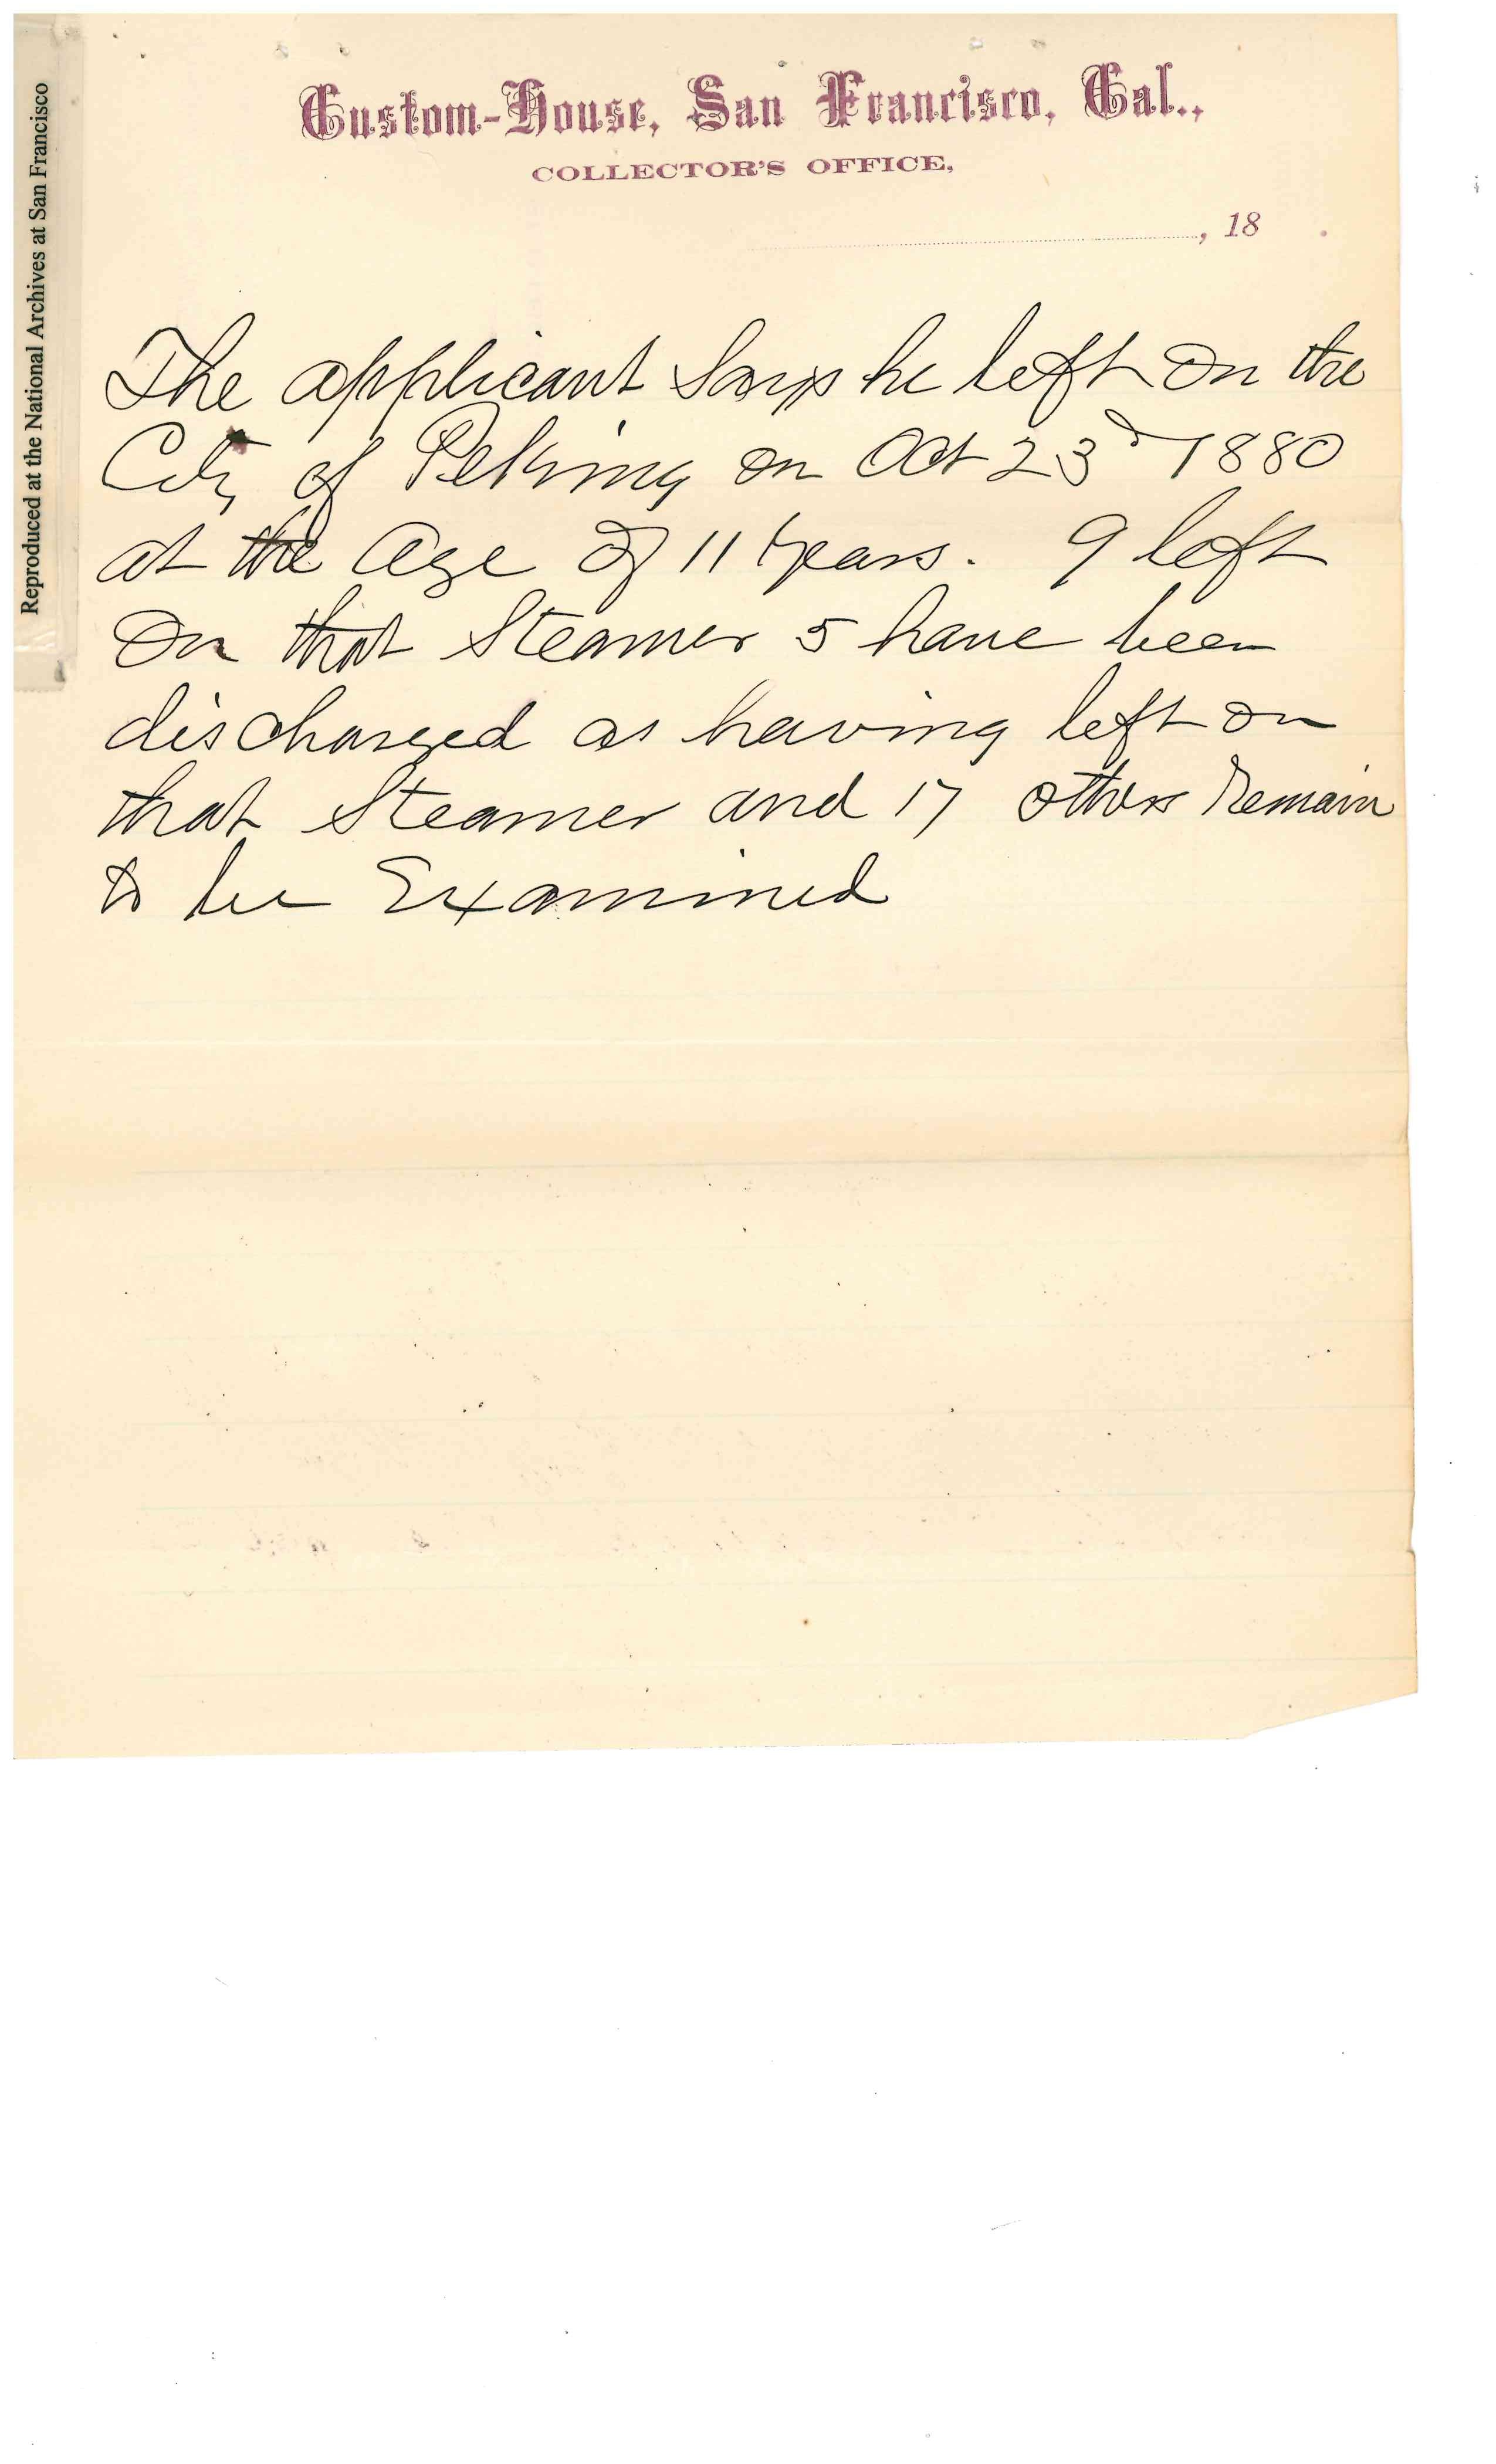 Reproduced at the National Archives at San Francisco
Custom-House, San Francisco, Cal.,
COLLECTOR'S OFFICE,
, 18 .
The applicant says he left on the
City of Peking on Oct 23d 1880
at the age of 11 years. 9 left
on that Steamer 5 have been
discharged as having left on
that Steamer and 17 others remain
to be Examined